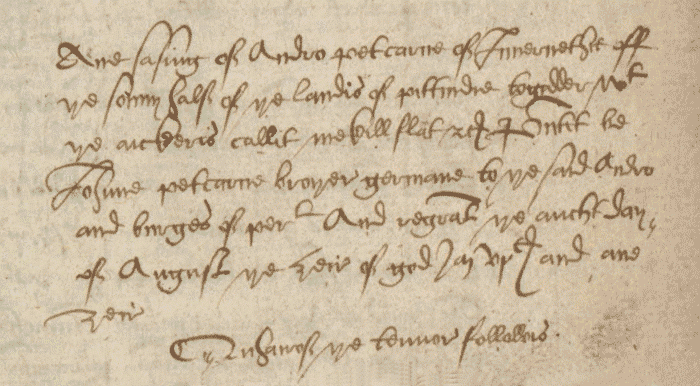 Ane sasing of Andro petcarne of Innernethie off
ye sonny half of ye landis of pittindie togidder wt
ye aickeris callit mekill flat &c
Johnne petcarne broyer germane to ye said Andro
and burges of pert And regrat ye aucht day
of August ye zeir of god Jaj vjc and ane
zeir
Quhairof ye tennor followis.